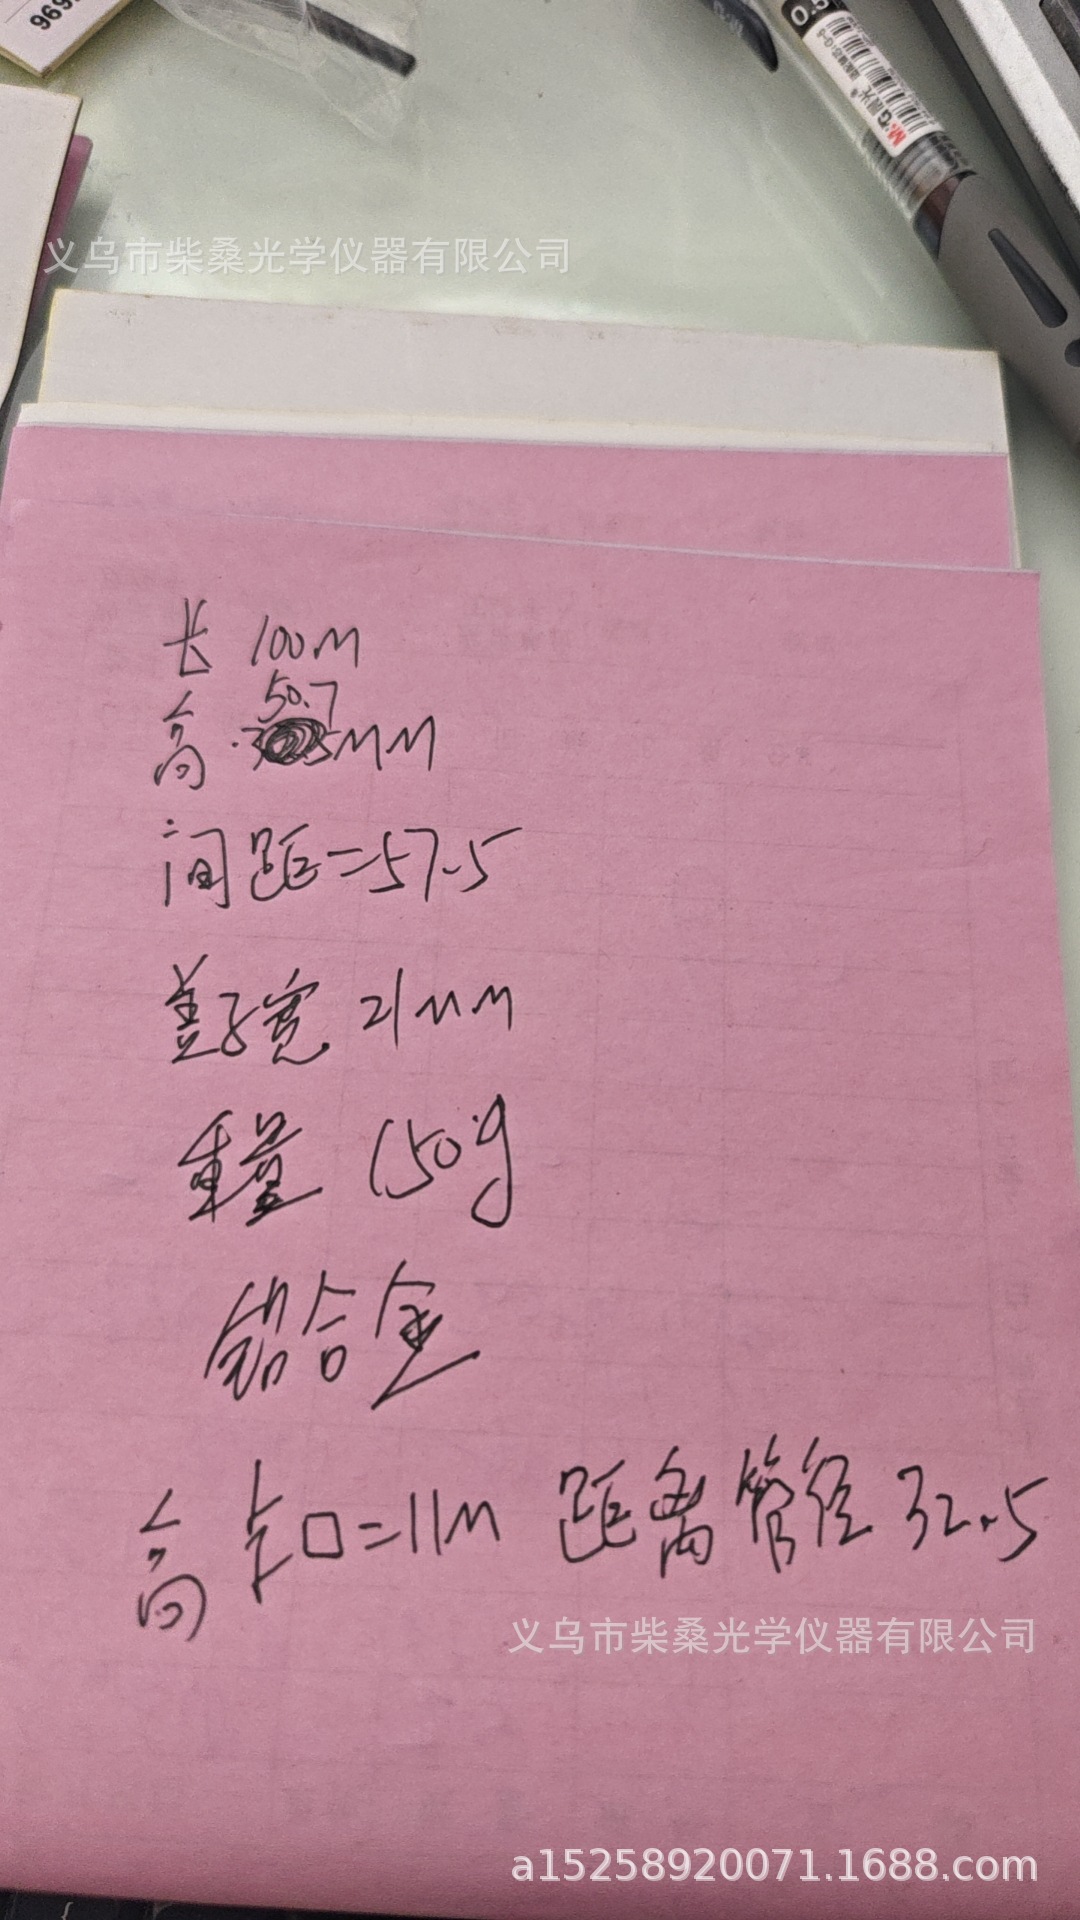 969
0.5
M&G 晨光
义乌市柴桑光学仪器有限公司
长 100M
50.7
高 MM
间距=57.5
盖子宽 21MM
重量 150g
铝合金
高卡口=11M 距离管径 32.5
义乌市柴桑光学仪器有限公司
a15258920071.1688.com